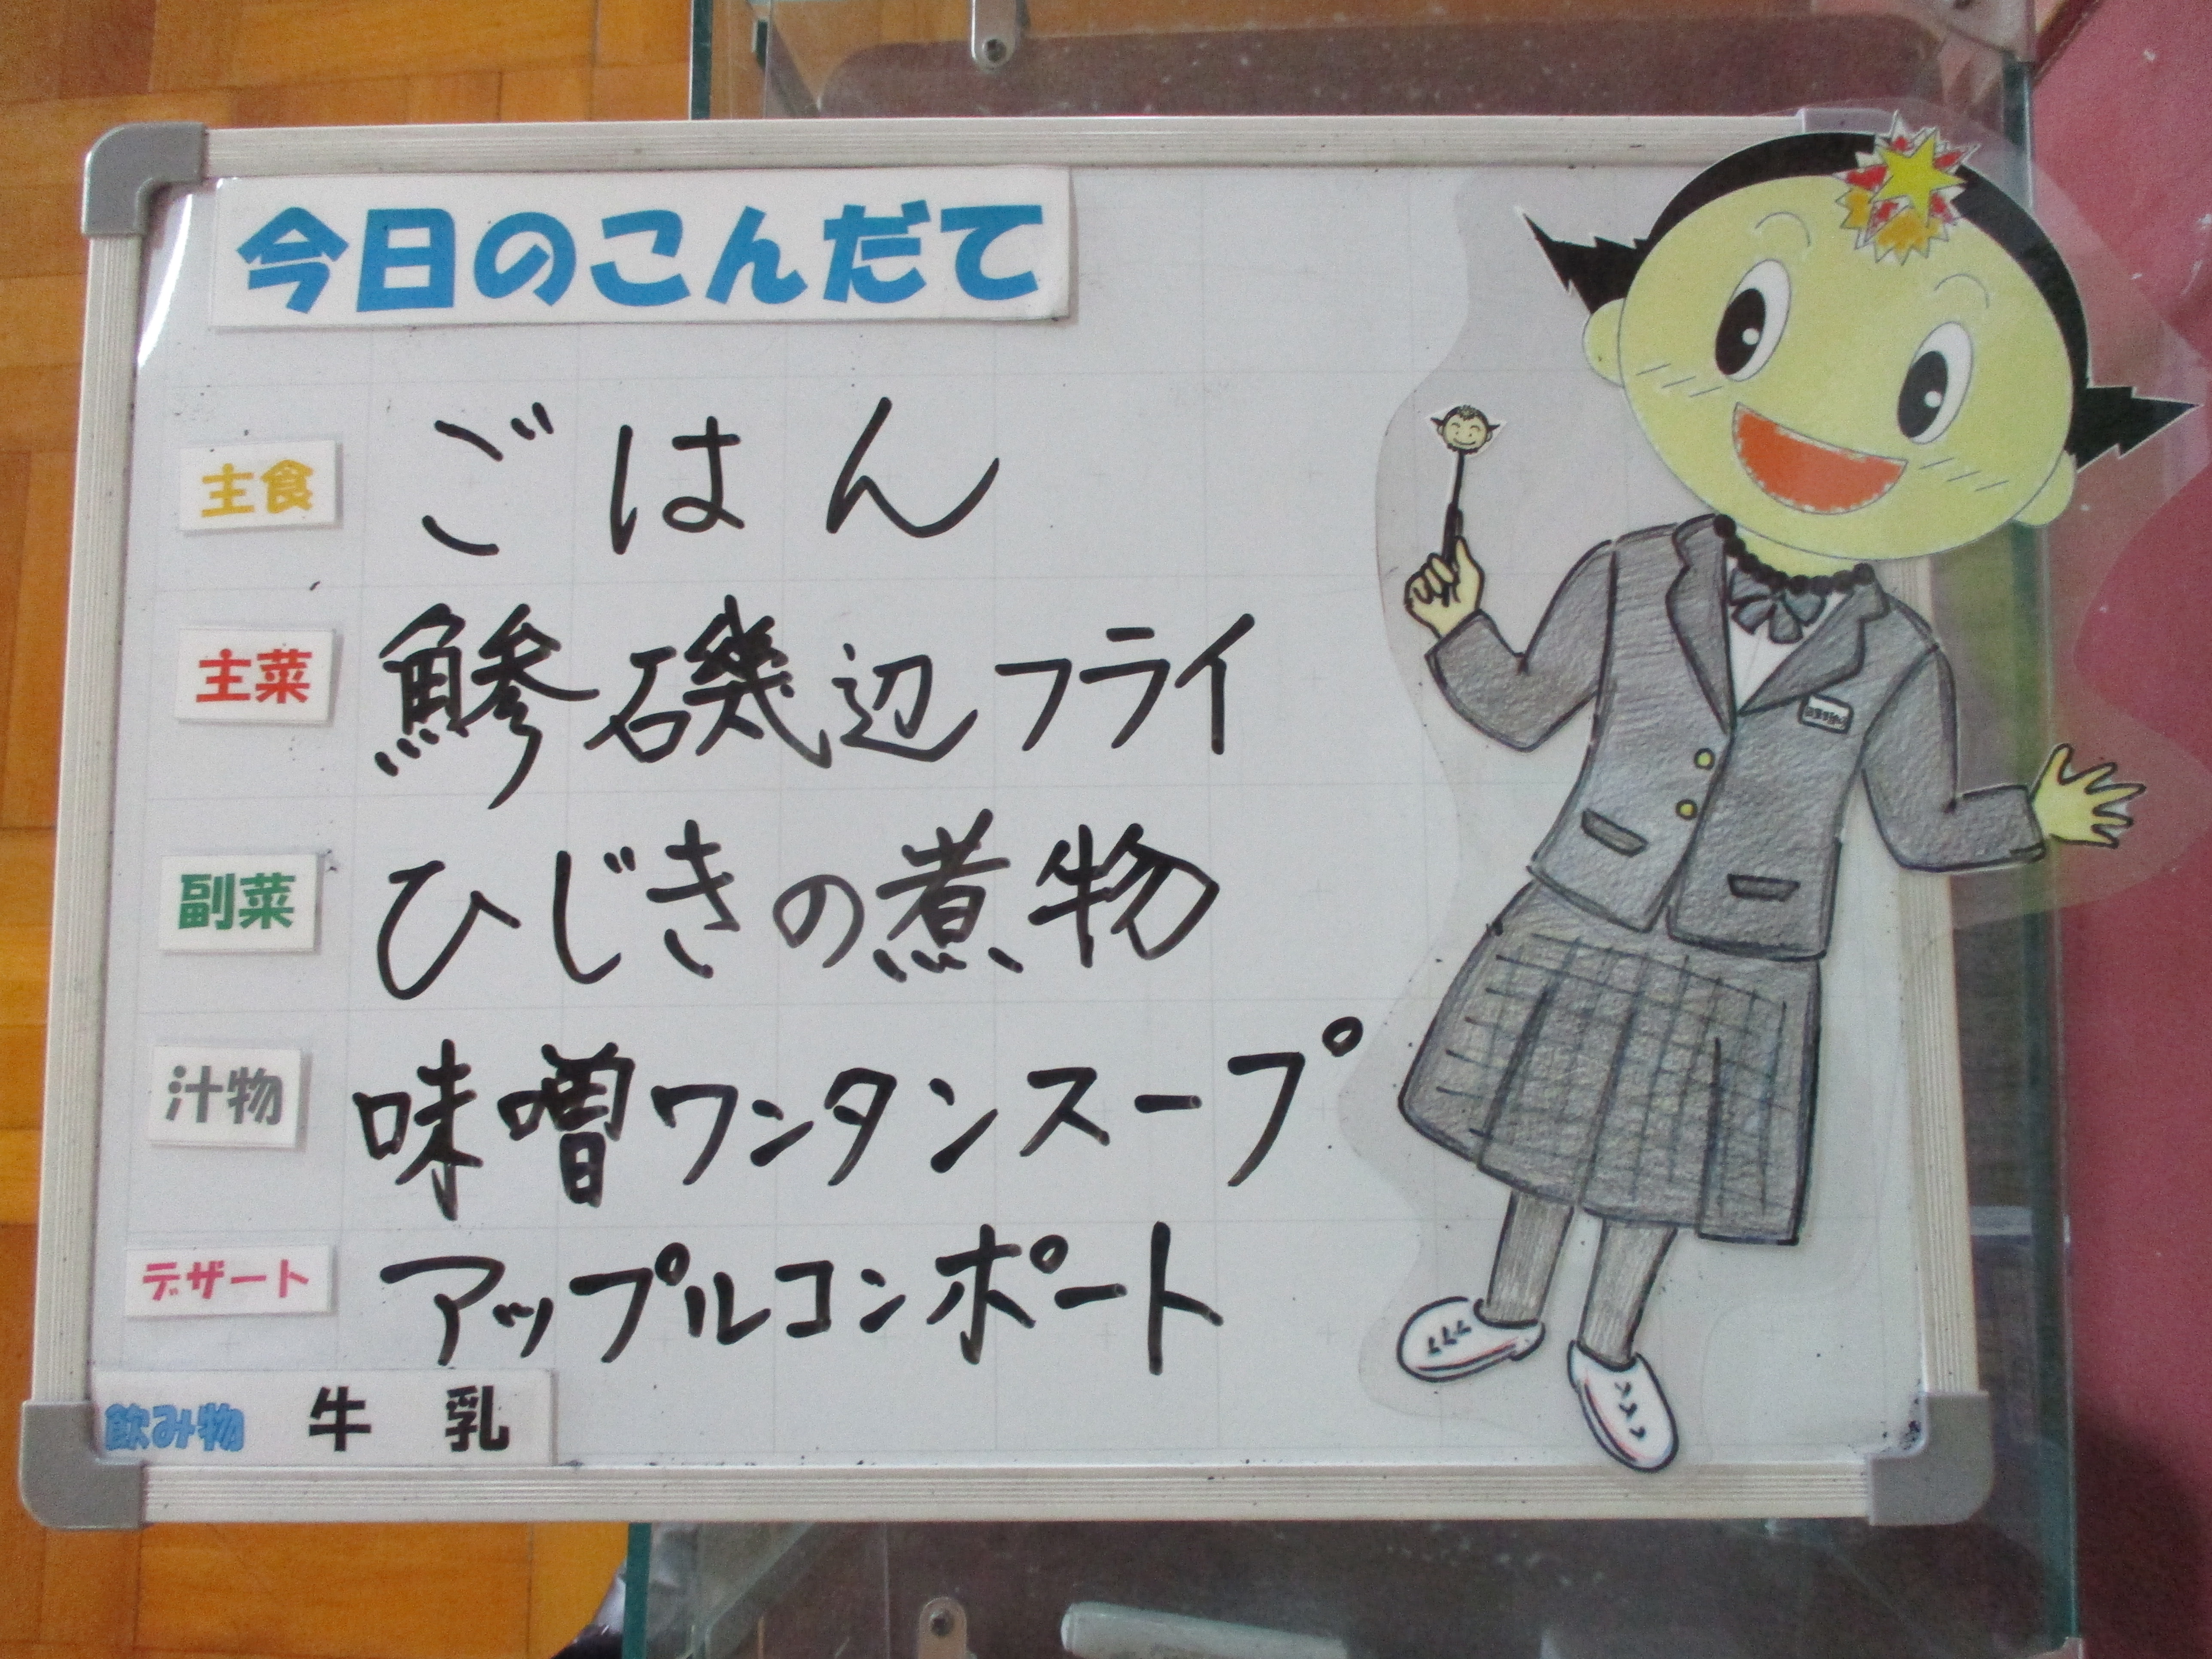 今日のこんだて
主食 ごはん
主菜 鯵磯辺フライ
副菜 ひじきの煮物
汁物 味噌ワンタンスープ
デザート アップルコンポート
飲み物 牛乳